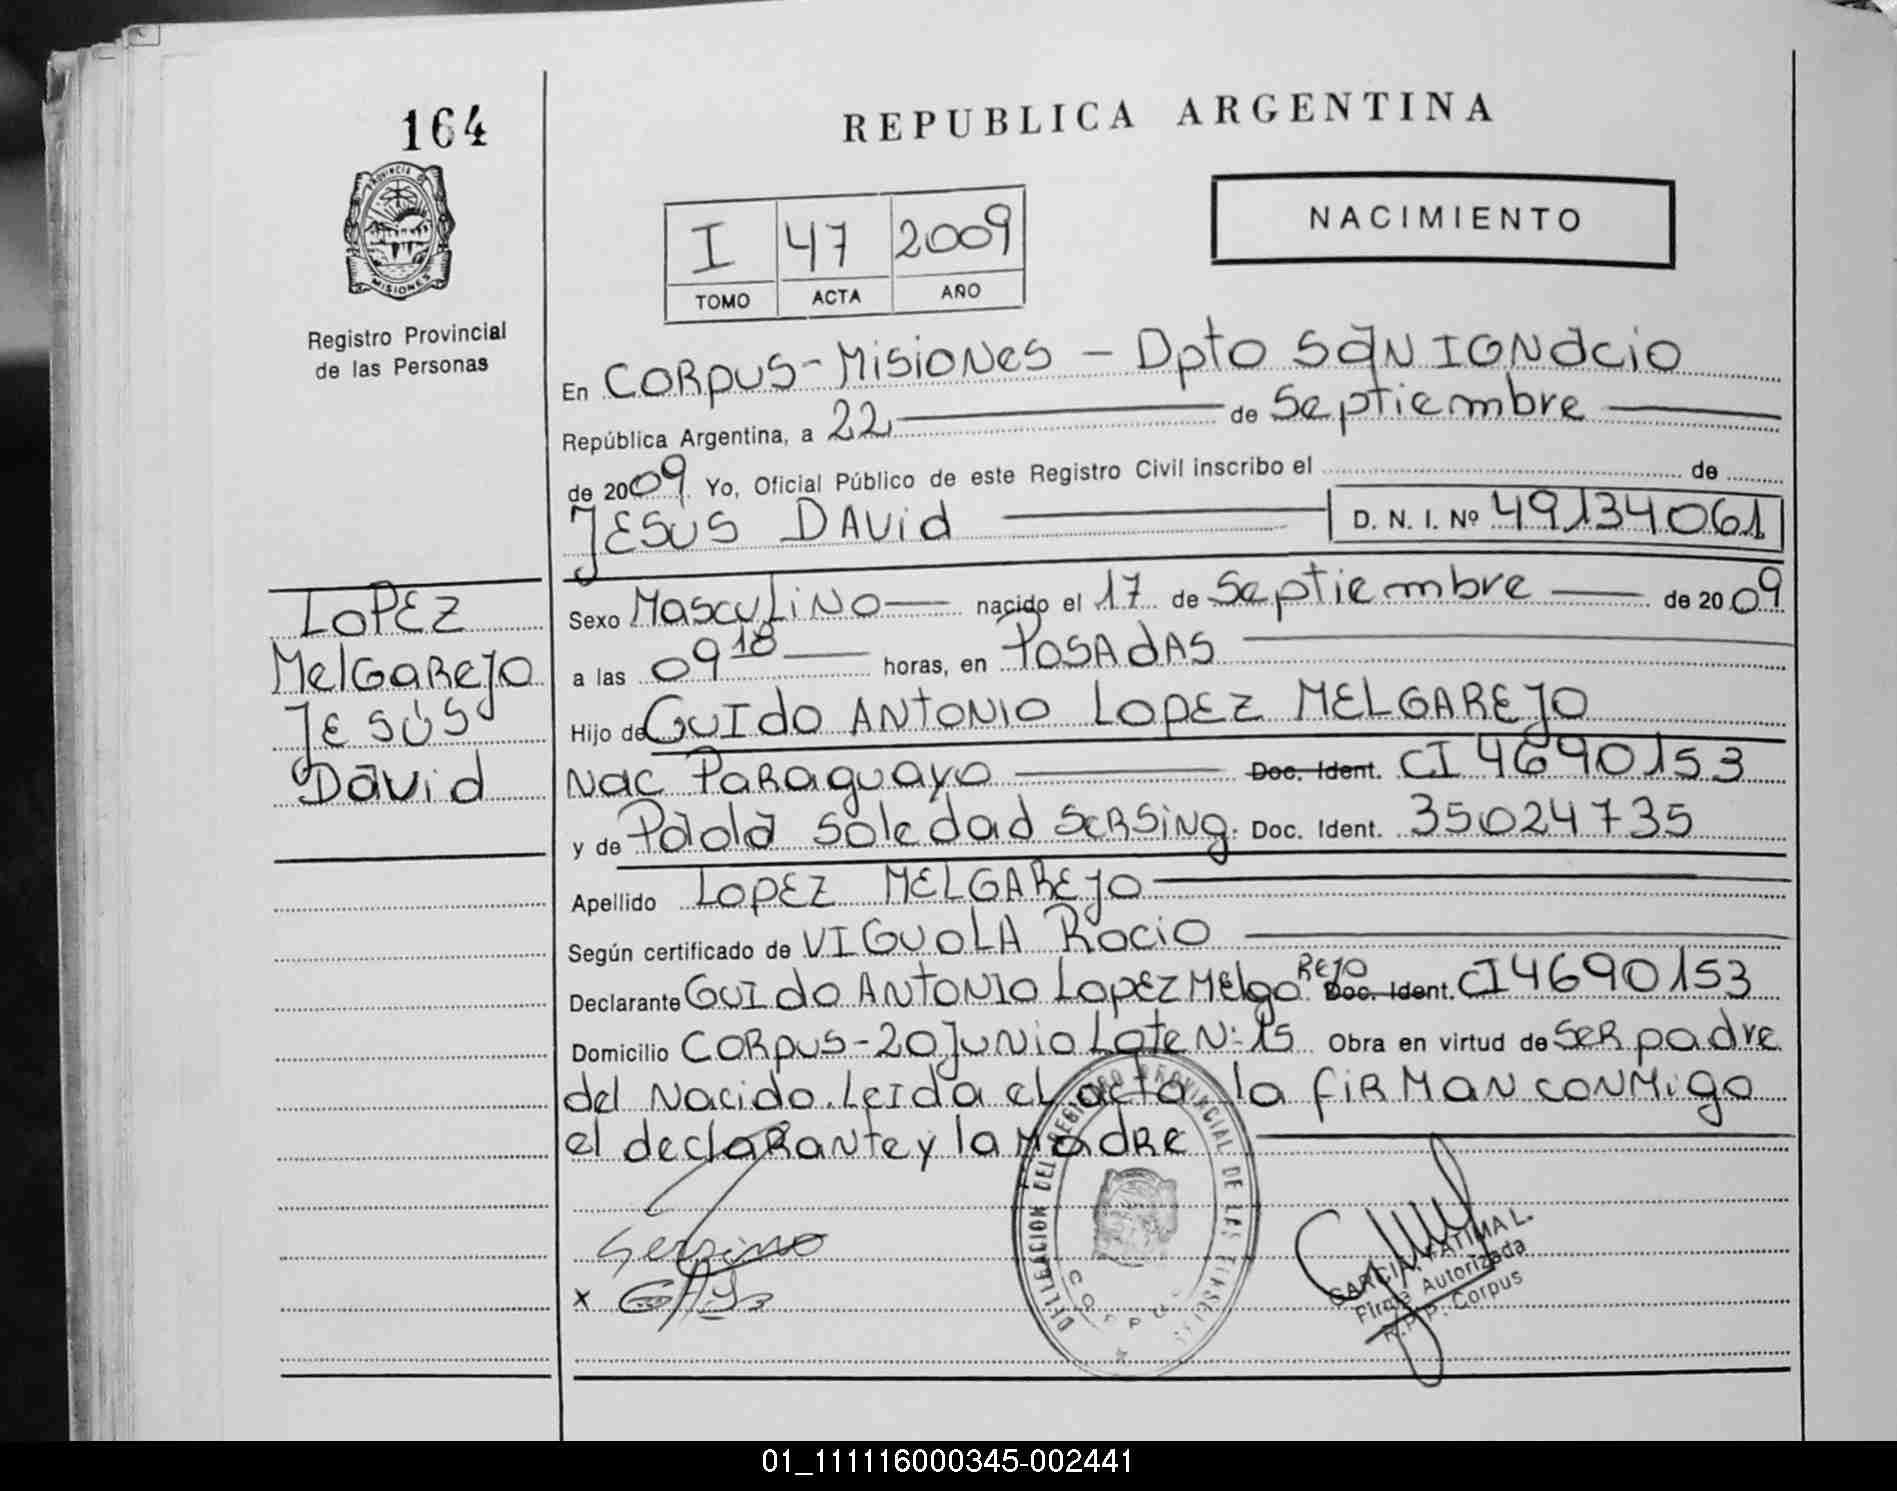 164
REPUBLICA ARGENTINA
PROVINCIA DE
MISIONES
Registro Provincial
de las Personas
I 47 2009
TOMO ACTA AÑO
NACIMIENTO
En CORPUS - Misiones - Dpto SAN IGNACIO
República Argentina, a 22 de Septiembre
de 2009 Yo, Oficial Público de este Registro Civil inscribo el de
JESÚS DAVID D. N. I. Nº 49134061
LOPEZ
MelGAREJO
JESÚS
David
Sexo MASCULINO nacido el 17 de Septiembre de 2009
a las 09 18 horas, en POSADAS
Hijo de GUIDO ANTONIO LOPEZ MELGAREJO
Nac PARAGUAYO Doc. Ident. CI 4690153
y de Paola Soledad SERSING. Doc. Ident. 35024735
Apellido LOPEZ MELGAREJO
Según certificado de VIGUOLA ROCIO
Declarante GUIDO ANTONIO LOPEZ MElgaREJO Doc. Ident. CI 4690153
Domicilio CORPUS - 20 JUNIO Lote N: 15 Obra en virtud de SER padre
del Nacido. LEIDA EL acta la FIRMAN CONMIGO
el declarante y la MADRE
DELEGACION DEL REGISTRO PROVINCIAL DE LAS PERSONAS
CORPUS
x
GARCIA FATIMA L.
Firma Autorizada
R.P.P. Corpus
01_111116000345-002441